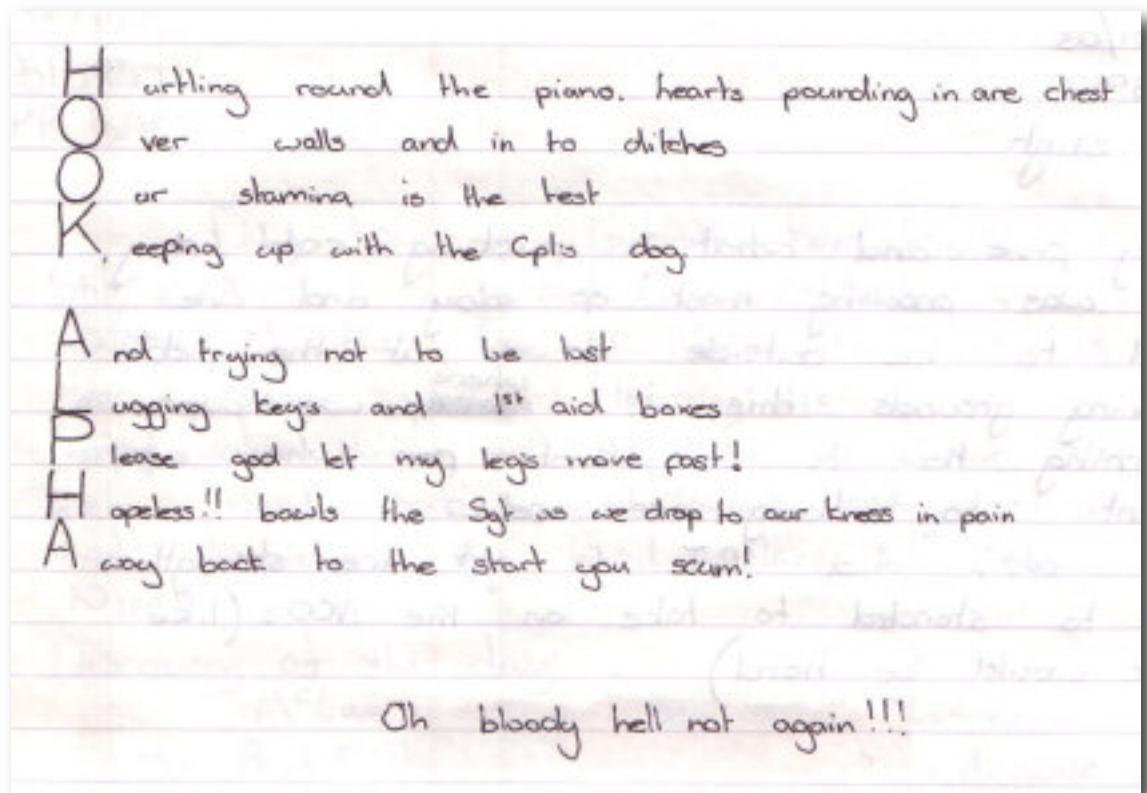 Hurtling round the piano. hearts pounding in are chest
Over walls and in to ditches
Our stamina is the test
Keeping up with the Cpl's dog.
And trying not to be last
Lugging key's and 1st aid boxes
Please god let my leg's move fast!
Hopeless!! bawls the Sgt as we drop to our knees in pain
Away back to the start you scum!
Oh bloody hell not again!!!